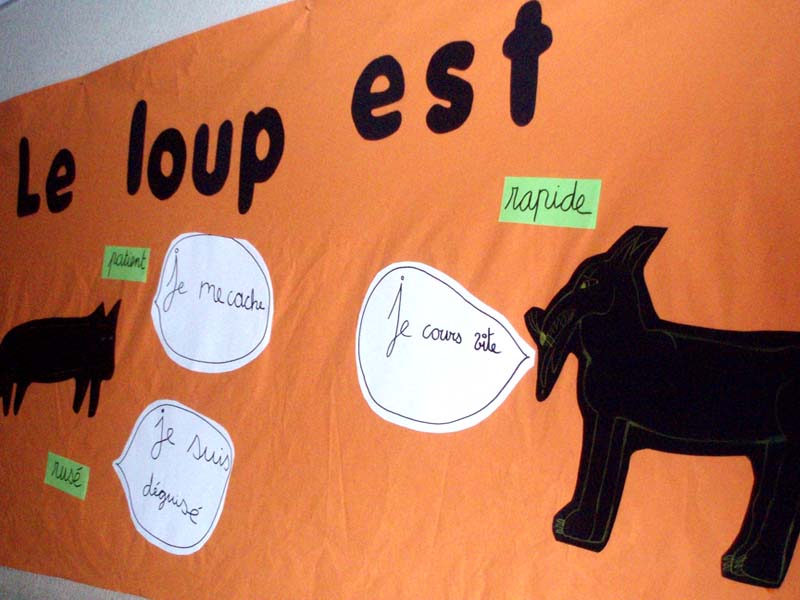 Le loup est
patient
je me cache
rapide
je cours vite
rusé
je suis
déguisé